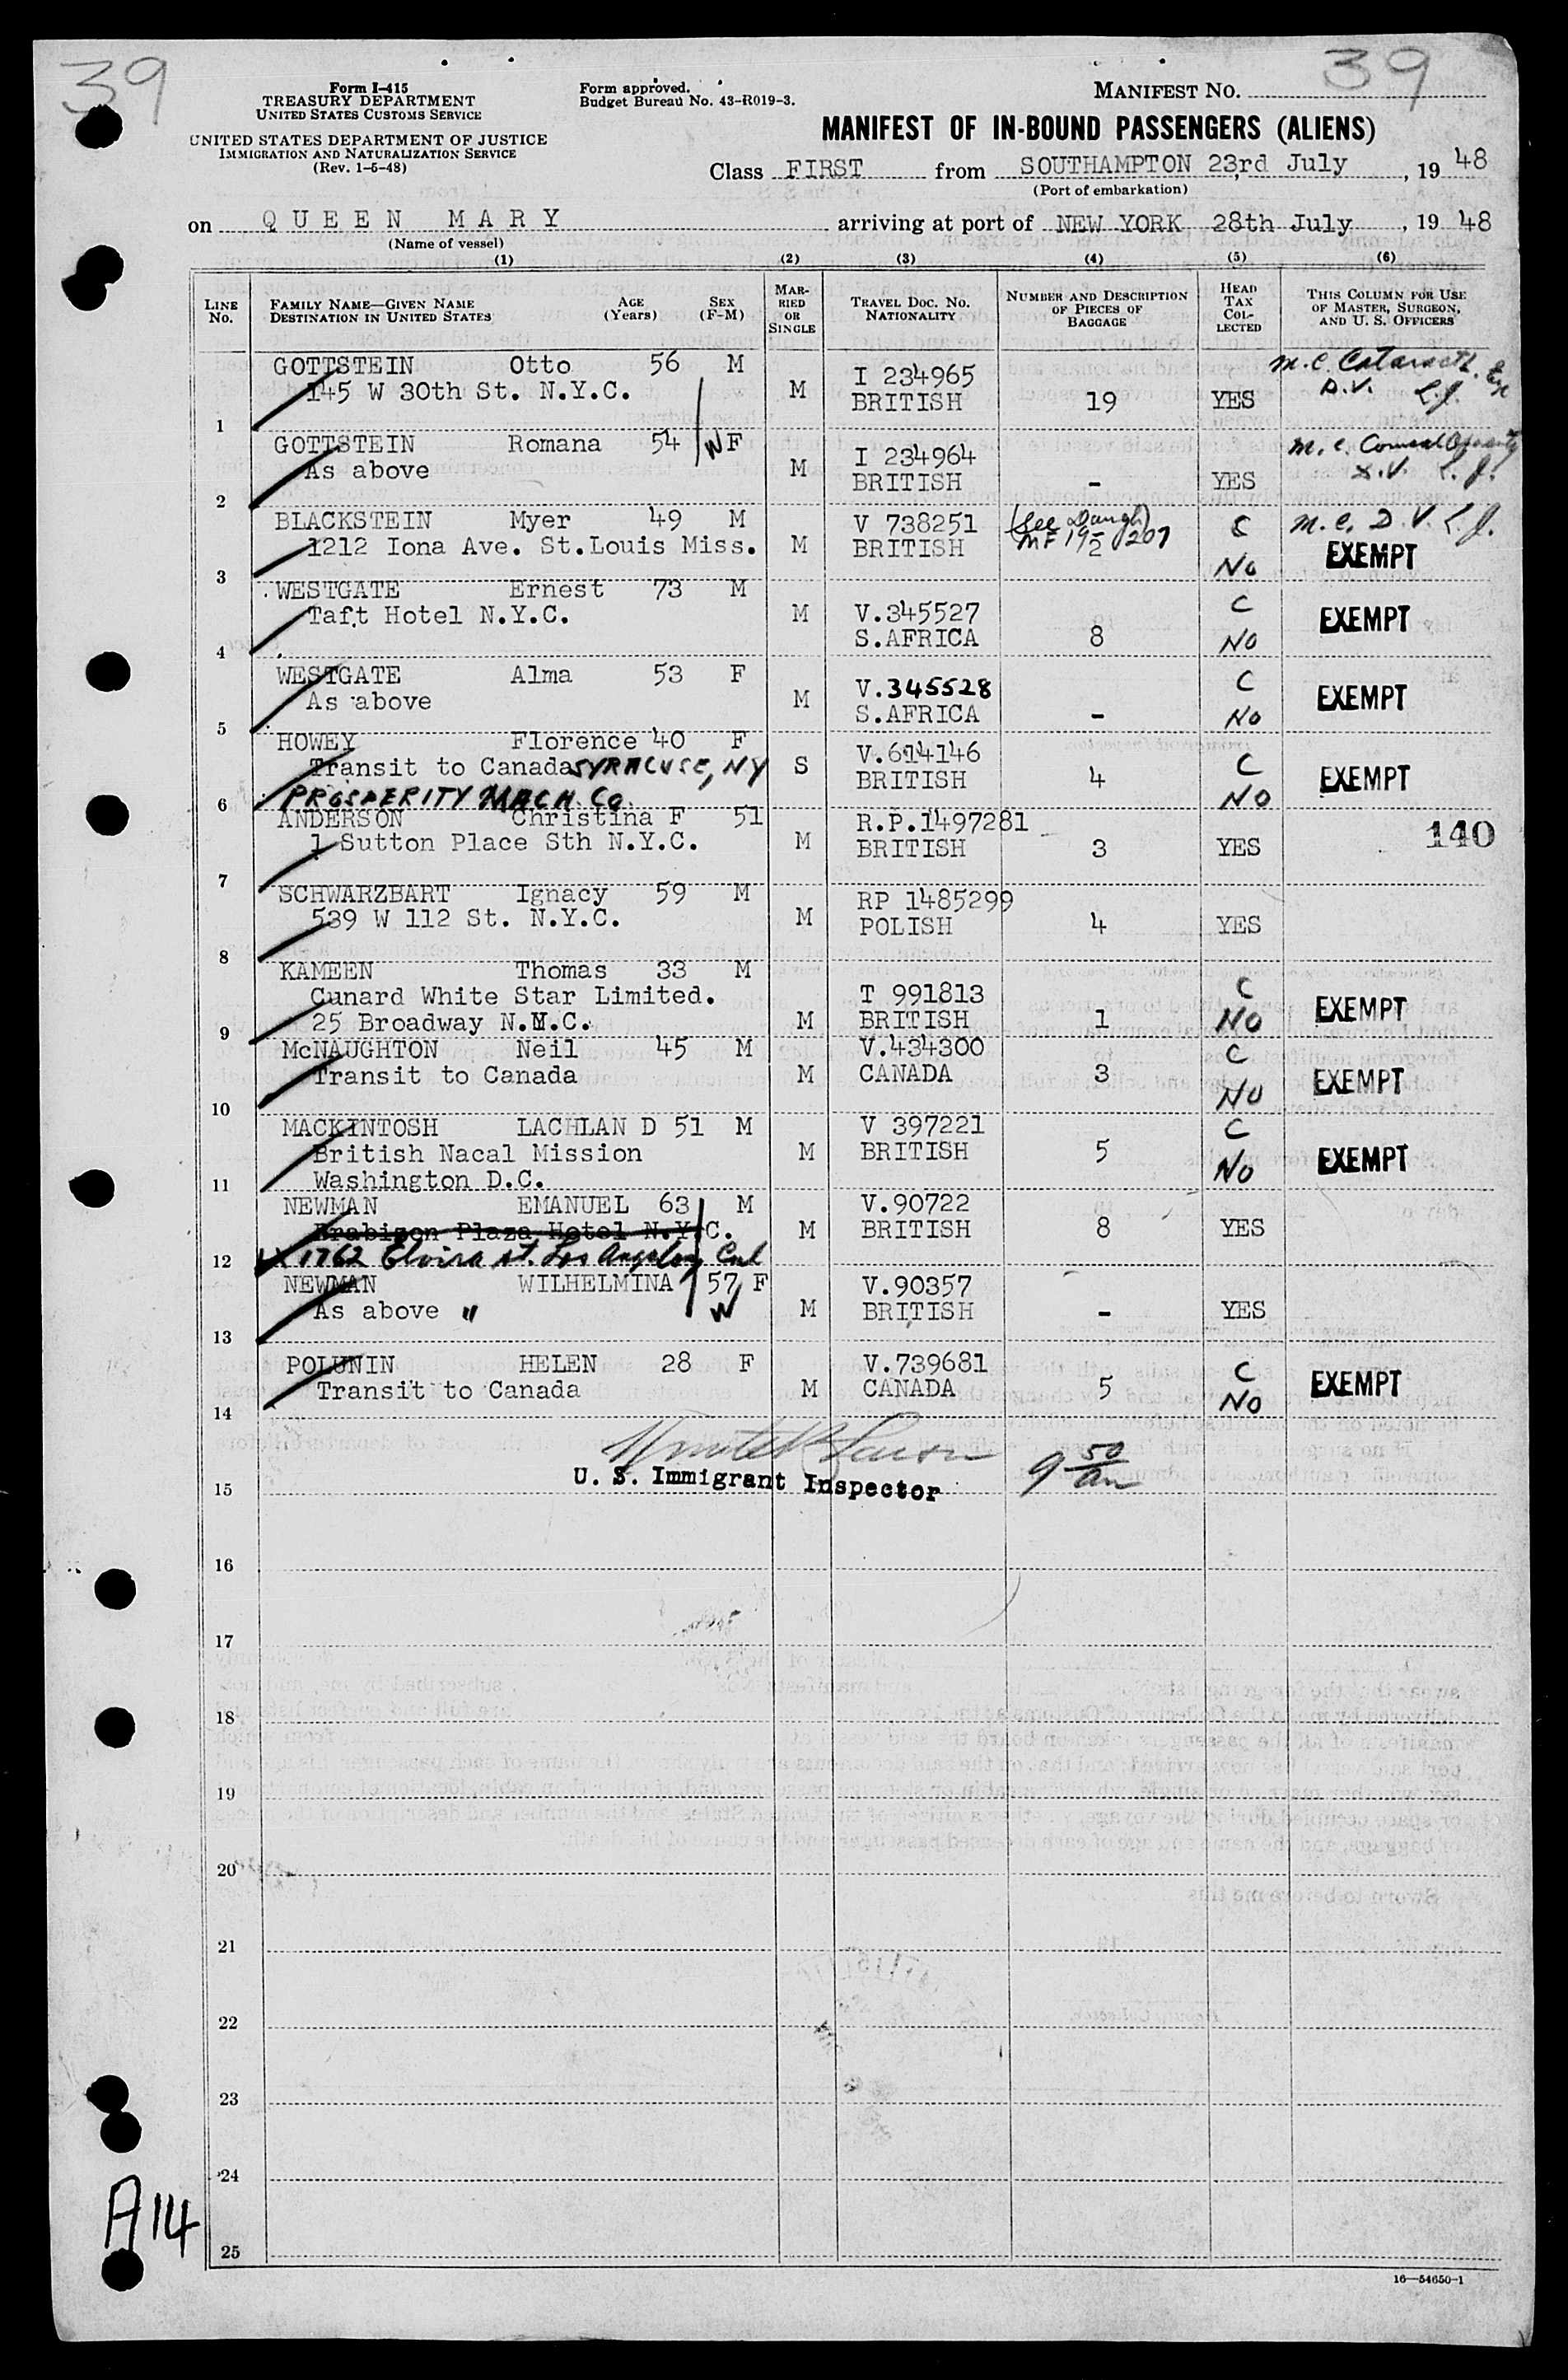 39
39
Form I-415
TREASURY DEPARTMENT
UNITED STATES CUSTOMS SERVICE
UNITED STATES DEPARTMENT OF JUSTICE
IMMIGRATION AND NATURALIZATION SERVICE
(Rev. 1-5-48)
Form approved.
Budget Bureau No. 43-R019-3.
MANIFEST NO.
MANIFEST OF IN-BOUND PASSENGERS (ALIENS)
Class FIRST from SOUTHAMPTON 23rd July, 19 48
(Port of embarkation)
on QUEEN MARY arriving at port of NEW YORK 28th July, 19 48
(Name of vessel)
(1) (2) (3) (4) (5) (6)
LINE No. FAMILY NAME—GIVEN NAME DESTINATION IN UNITED STATES AGE (Years) SEX (F-M) MARRIED OR SINGLE TRAVEL DOC. NO. NATIONALITY NUMBER AND DESCRIPTION OF PIECES OF BAGGAGE HEAD TAX COLLECTED THIS COLUMN FOR USE OF MASTER, SURGEON, AND U. S. OFFICERS
GOTTSTEIN Otto 56 M I 234965 m.c. Cataract
145 W 30th St. N.Y.C. M BRITISH 19 YES D.V. L.J.
1
GOTTSTEIN Romana 54 W F I 234964 m.c. Corneal Opacity
As above M BRITISH - YES L.J.
2
BLACKSTEIN Myer 49 M V 738251 (See Daugh) C m.c. D.V. L.J.
1212 Iona Ave. St.Louis Miss. M BRITISH MF 19- 207 2 No EXEMPT
3
WESTGATE Ernest 73 M V.345527 C
Taft Hotel N.Y.C. M S.AFRICA 8 No EXEMPT
4
WESTGATE Alma 53 F V.345528 C
As above M S.AFRICA - No EXEMPT
5
HOWEY Florence 40 F V.614146 C
Transit to Canada SYRACUSE, NY S BRITISH 4 NO EXEMPT
6 PROSPERITY MACH. Co.
ANDERSON Christina F 51 R.P.1497281 140
1 Sutton Place Sth N.Y.C. M BRITISH 3 YES
7
SCHWARZBART Ignacy 59 M RP 1485299
539 W 112 St. N.Y.C. M POLISH 4 YES
8
KAMEEN Thomas 33 M T 991813 C
Cunard White Star Limited. EXEMPT
9 25 Broadway N.Y.C. M BRITISH 1 NO
McNAUGHTON Neil 45 M V.434300 C
Transit to Canada M CANADA 3 NO EXEMPT
10
MACKINTOSH LACHLAN D 51 M V 397221 C
British Nacal Mission M BRITISH 5 NO EXEMPT
11 Washington D.C.
NEWMAN EMANUEL 63 M V.90722
Brabizon Plaza Hotel N.Y.C. M BRITISH 8 YES
12 1762 Elvira st. Los Angeles, Cal
NEWMAN WILHELMINA 57 F V.90357
As above " W M BRITISH - YES
13
POLUNIN HELEN 28 F V.739681 C
Transit to Canada M CANADA 5 NO EXEMPT
14
U. S. Immigrant Inspector 9 50 am
15
16
17
18
19
20
21
22
23
24
25
A14
16—54650-1